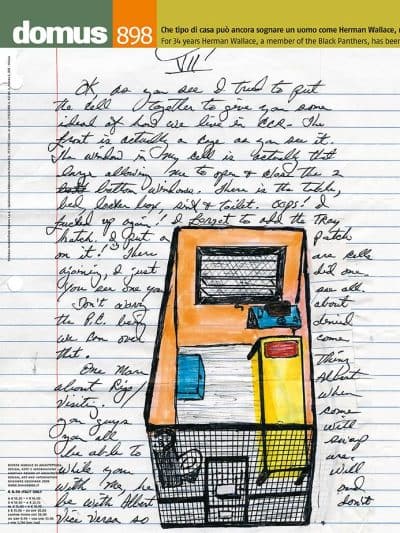 domus 898
Che tipo di casa può ancora sognare un uomo come Herman Wallace,
For 34 years Herman Wallace, a member of the Black Panthers, has been
VII
OK, as you see I tried to put
the cell together to give you some
ideal of how we live in CCR. The
front is actually a cage as you see it.
The window in my cell is actually that
large allowing me to open & close the 2
bottom windows. There is the table,
bed, locker box, sink & toilet. Oops! I
fucked up again! I forgot to add the Tray
hatch. I put a Patch
on it! There are cells
ajoining, I just did one.
You see one you see all.
Don't worry about
the P.C. being denied
we can over come
that.
One More Thing
about Rigo/ Albert
Visiting. When
you guys come
you all will
be able to swap
while you are.
with me, he will
be with Albert and
Vice Versa so don't